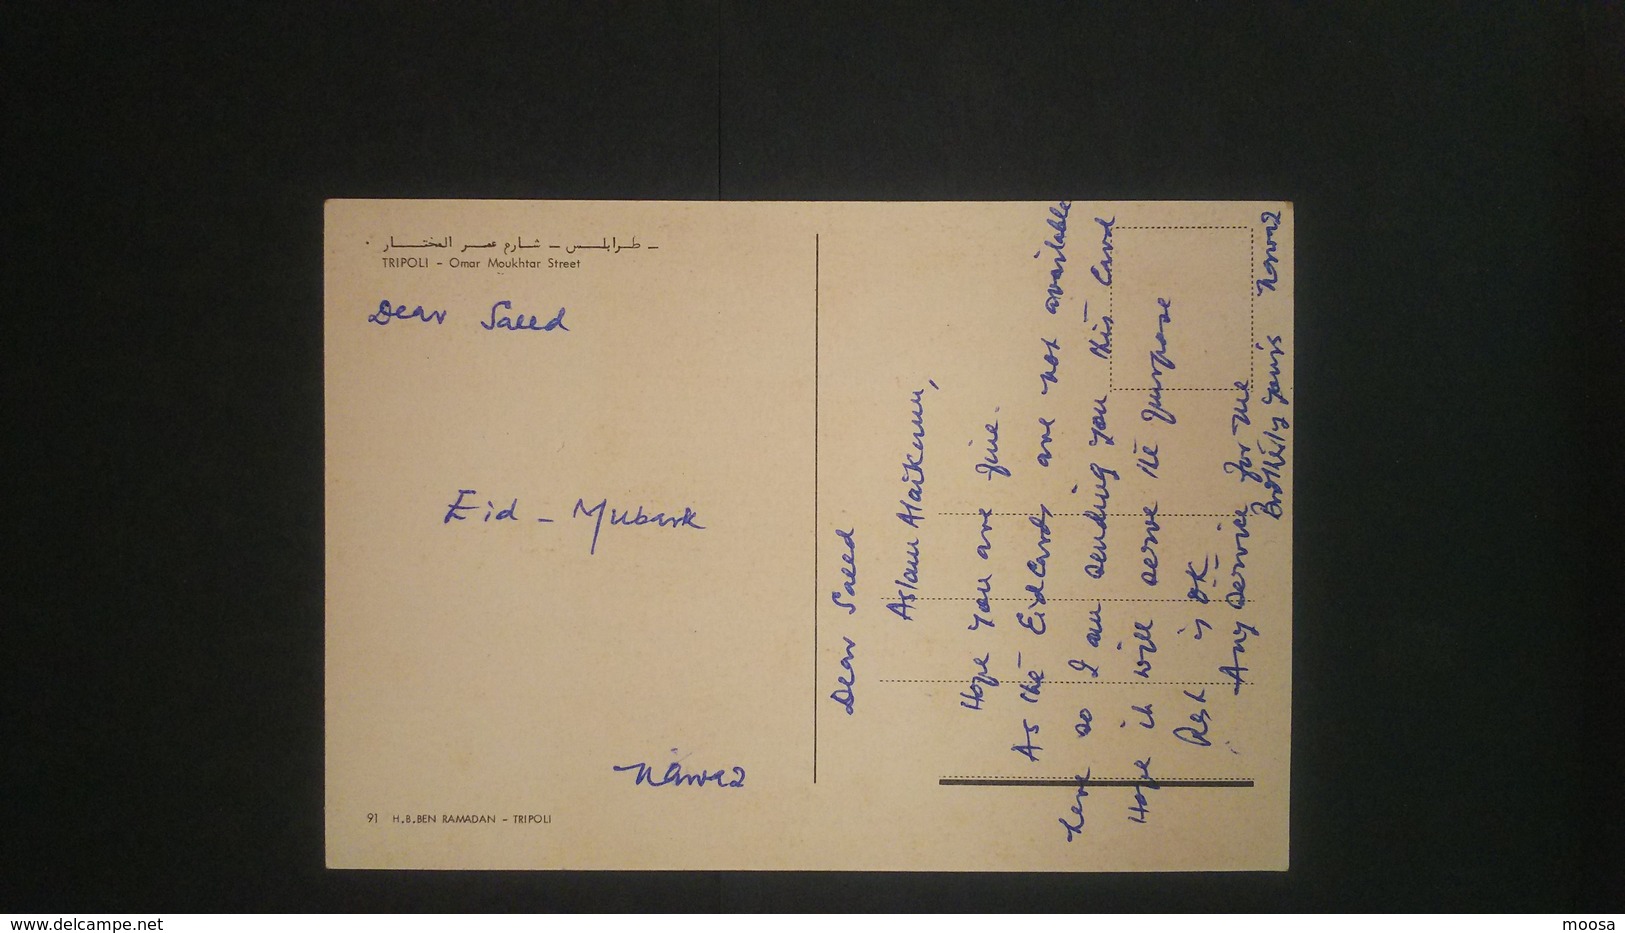 طرابلس - شارع عمر المختار -
TRIPOLI - Omar Moukhtar Street
Dear Saeed
Eid - Mubark
Nawaz
91 H.B.BEN RAMADAN - TRIPOLI
Dear Saeed
Aslam Alaikum,
Hope you are fine.
As the Eid Cards are not available
here so I am sending you this Card
Hope it will serve the purpose
Rest is OK
Any service for me
Brotherly yours Nawaz
© Delcampe.net
moosa